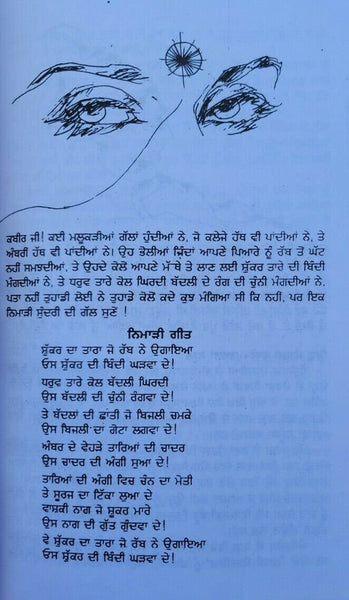 ਕਬੀਰ ਜੀ! ਕਈ ਮਲੂਕੜੀਆਂ ਗੱਲਾਂ ਹੁੰਦੀਆਂ ਨੇ, ਜੋ ਕਲੇਜੇ ਹੱਥ ਵੀ ਪਾਂਦੀਆਂ ਨੇ, ਤੇ
ਅੰਬਰੀਂ ਹੱਥ ਵੀ ਪਾਂਦੀਆਂ ਨੇ। ਉਹ ਭੋਲੀਆਂ ਜ਼ਿੰਦਾਂ ਆਪਣੇ ਪਿਆਰੇ ਨੂੰ ਰੱਬ ਤੋਂ ਘੱਟ
ਨਹੀਂ ਸਮਝਦੀਆਂ, ਤੇ ਉਹਦੇ ਕੋਲੋਂ ਆਪਣੇ ਮੱਥੇ ਤੇ ਲਾਣ ਲਈ ਸ਼ੁੱਕਰ ਤਾਰੇ ਦੀ ਬਿੰਦੀ
ਮੰਗਦੀਆਂ ਨੇ, ਤੇ ਧਰੁਵ ਤਾਰੇ ਕੋਲ ਘਿਰਦੀ ਬੱਦਲੀ ਦੇ ਰੰਗ ਦੀ ਚੁੰਨੀ ਮੰਗਦੀਆਂ ਨੇ।
ਪਤਾ ਨਹੀਂ ਤੁਹਾਡੀ ਲੋਈ ਨੇ ਤੁਹਾਡੇ ਕੋਲੋਂ ਕਦੇ ਕੁਝ ਮੰਗਿਆ ਸੀ ਕਿ ਨਹੀਂ, ਪਰ ਇਕ
ਨਿਮਾੜੀ ਸੁੰਦਰੀ ਦੀ ਗੱਲ ਸੁਣੋ !
ਨਿਮਾੜੀ ਗੀਤ
ਸ਼ੁੱਕਰ ਦਾ ਤਾਰਾ ਜੋ ਰੱਬ ਨੇ ਉਗਾਇਆ
ਓਸ ਸ਼ੁੱਕਰ ਦੀ ਬਿੰਦੀ ਘੜਵਾ ਦੇ!
ਧਰੁਵ ਤਾਰੇ ਕੋਲ ਬੱਦਲੀ ਘਿਰਦੀ
ਉਸ ਬੱਦਲੀ ਦੀ ਚੁੰਨੀ ਰੰਗਵਾ ਦੇ!
ਤੇ ਬੱਦਲਾਂ ਦੀ ਛਾਂਤੀ ਜੋ ਬਿਜਲੀ ਚਮਕੇ
ਉਸ ਬਿਜਲੀ ਦਾ ਗੋਟਾ ਲਗਵਾ ਦੇ!
ਅੰਬਰ ਦੇ ਵੇਹੜੇ ਤਾਰਿਆਂ ਦੀ ਚਾਦਰ
ਉਸ ਚਾਦਰ ਦੀ ਅੰਗੀ ਸੁਆ ਦੇ!
ਤਾਰਿਆਂ ਦੀ ਅੰਗੀ ਵਿਚ ਚੰਨ ਦਾ ਮੋਤੀ
ਤੇ ਸੂਰਜ ਦਾ ਟਿੱਕਾ ਲੁਆ ਦੇ
ਵਾਸ਼ਕੀ ਨਾਗ ਜੋ ਸ਼ੂਕਰ ਮਾਰੇ
ਉਸ ਨਾਗ ਦੀ ਗੁੱਤ ਗੁੰਦਵਾ ਦੇ!
ਵੇ ਸ਼ੁੱਕਰ ਦਾ ਤਾਰਾ ਜੋ ਰੱਬ ਨੇ ਉਗਾਇਆ
ਓਸ ਸ਼ੁੱਕਰ ਦੀ ਬਿੰਦੀ ਘੜਵਾ ਦੇ!